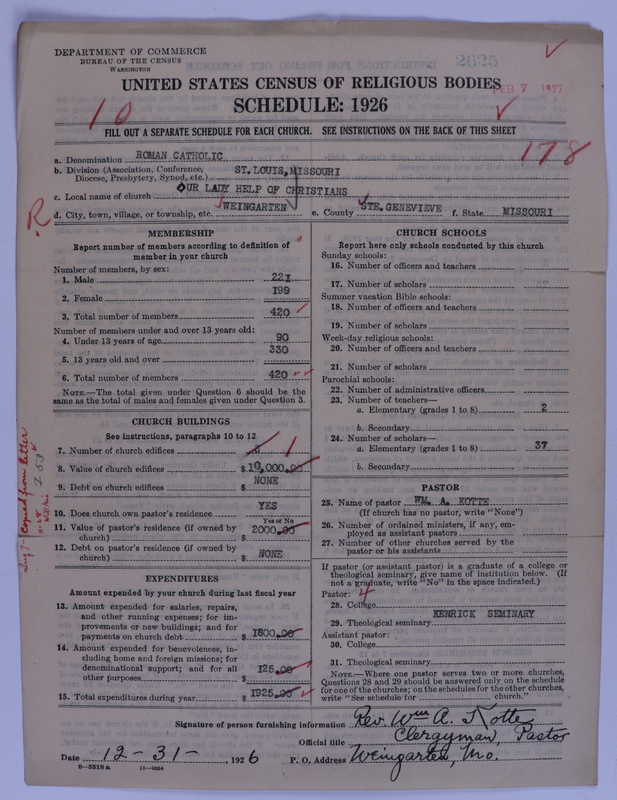 DEPARTMENT OF COMMERCE
BUREAU OF THE CENSUS
WASHINGTON
2625
UNITED STATES CENSUS OF RELIGIOUS BODIES
FEB 7 1927
SCHEDULE: 1926
10
FILL OUT A SEPARATE SCHEDULE FOR EACH CHURCH. SEE INSTRUCTIONS ON THE BACK OF THIS SHEET
178
a. Denomination ROMAN CATHOLIC
b. Division (Association, Conference, Diocese, Presbytery, Synod, etc.) ST. LOUIS, MISSOURI
c. Local name of church OUR LADY HELP OF CHRISTIANS
R
d. City, town, village, or township, etc. WEINGARTEN e. County STE. GENEVIEVE f. State MISSOURI
MEMBERSHIP
Report number of members according to definition of
member in your church
Number of members, by sex:
1. Male 221
2. Female 199
3. Total number of members 420
Number of members under and over 13 years old:
4. Under 13 years of age 90
5. 13 years old and over 330
6. Total number of members 420
NOTE.—The total given under Question 6 should be
same as the total of males and females given under Question 3.
CHURCH BUILDINGS
See instructions, paragraphs 10 to 12
7. Number of church edifices 1
8. Value of church edifices $10,000.00
9. Debt on church edifices $ NONE
10. Does church own pastor's residence? YES
Yes or No
11. Value of pastor's residence (if owned by
church) $ 2000.00
12. Debt on pastor's residence (if owned by
church) $ NONE
Copied from letter
EXPENDITURES
Amount expended by your church during last fiscal year
13. Amount expended for salaries, repairs,
and other running expenses; for im-
provements or new buildings; and for
payments on church debt $ 1800.00
14. Amount expended for benevolences, in-
cluding home and foreign missions; for
denominational support; and for all
other purposes $ 125.00
15. Total expenditures during year $ 1925.00
CHURCH SCHOOLS
Report here only schools conducted by this church
Sunday schools:
16. Number of officers and teachers
17. Number of scholars
Summer vacation Bible schools:
18. Number of officers and teachers
19. Number of scholars
Week-day religious schools:
20. Number of officers and teachers
21. Number of scholars
Parochial schools:
22. Number of administrative officers
23. Number of teachers—
a. Elementary (grades 1 to 8) 2
b. Secondary
24. Number of scholars—
a. Elementary (grades 1 to 8) 37
b. Secondary
PASTOR
25. Name of pastor WM. A. KOTTE
(If church has no pastor, write "None")
26. Number of ordained ministers, if any, em-
ployed as assistant pastors
27. Number of other churches served by the
pastor or his assistants
If pastor (or assistant pastor) is a graduate of a college or
theological seminary, give name of institution below. (If
not a graduate, write "No" in the space indicated.)
Pastor: 4
28. College
29. Theological seminary KENRICK SEMINARY
Assistant pastor:
30. College
31. Theological seminary
NOTE.—Where one pastor serves two or more churches,
Questions 28 and 29 should be answered only on the schedule
for one of the churches; on the schedules for the other churches,
write "See schedule for church."
Signature of person furnishing information Rev. Wm A. Kotte
Official title Clergyman, Pastor
Date 12-31-, 1926 P. O. Address Weingarten, Mo.
8-5518 a 11-9864